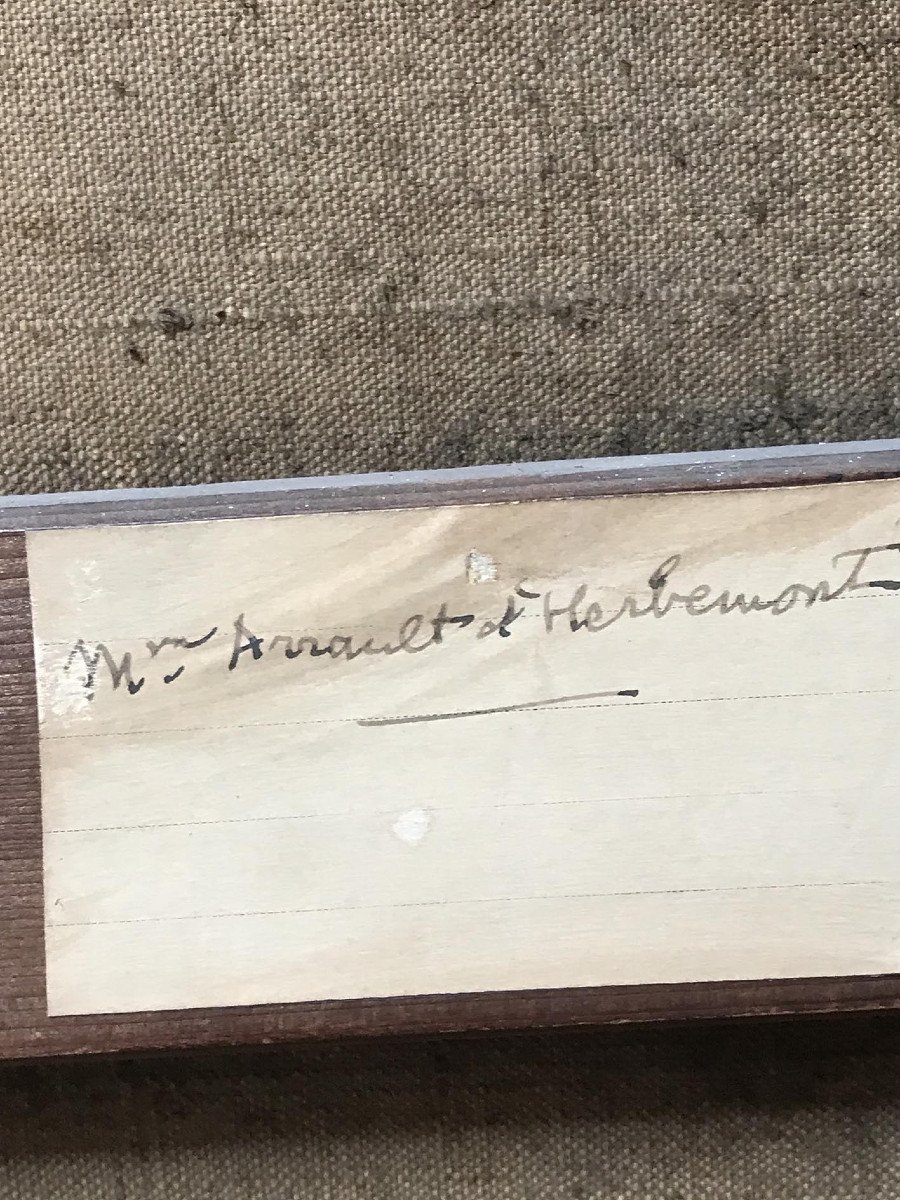 Mm Arrault d'Herbemont